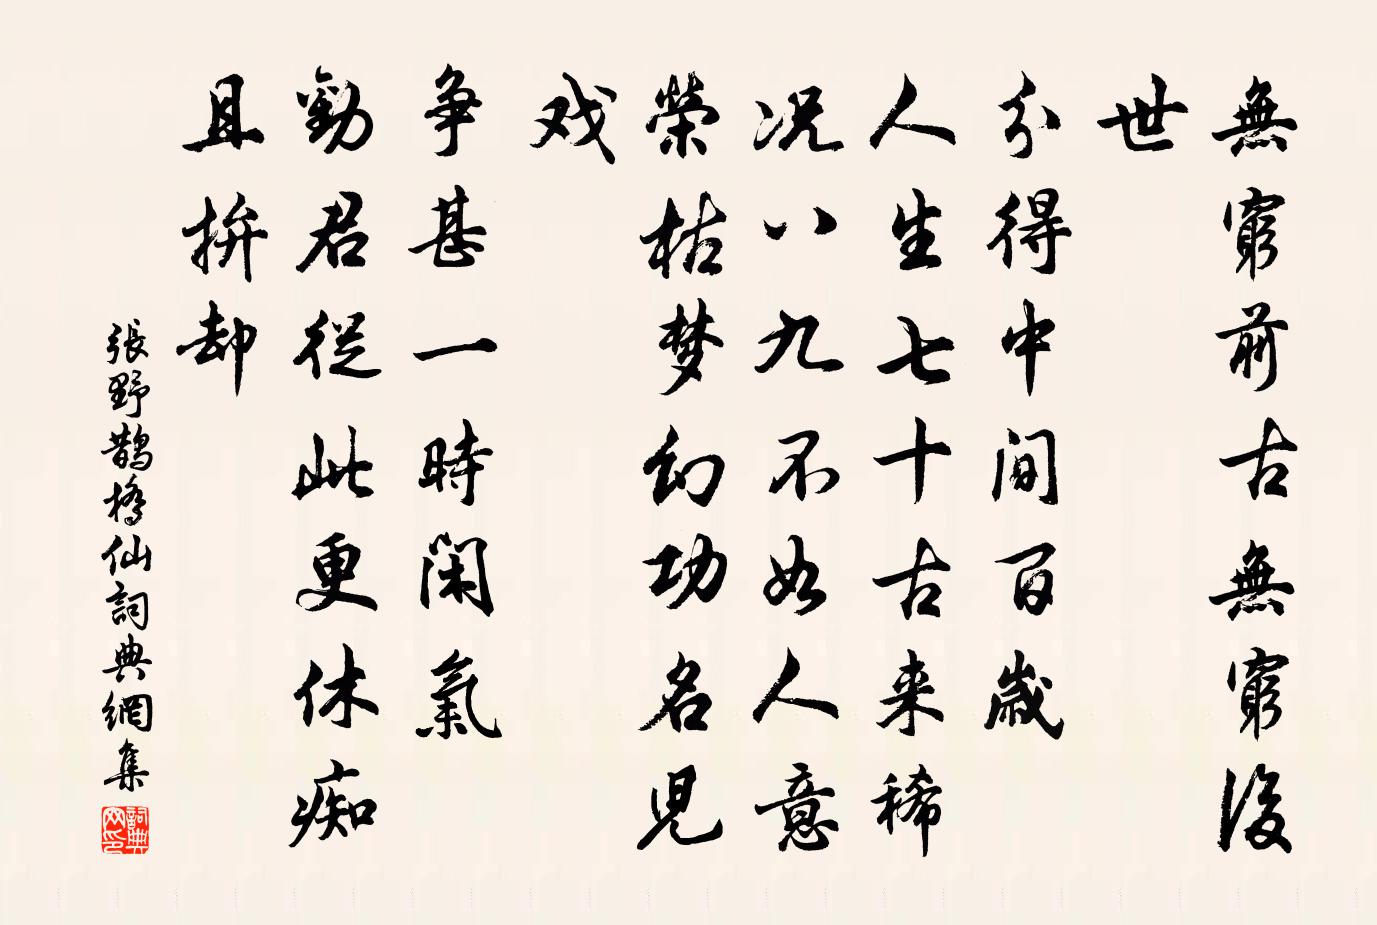 無窮前古無窮後
世
分得中间百歲
人生七十古来稀
况八九不如人意
榮枯梦幻功名児
戏
争甚一時閑氣
勸君從此更休痴
且拚却
張野鵲橋仙詞典網集
詞典
网印